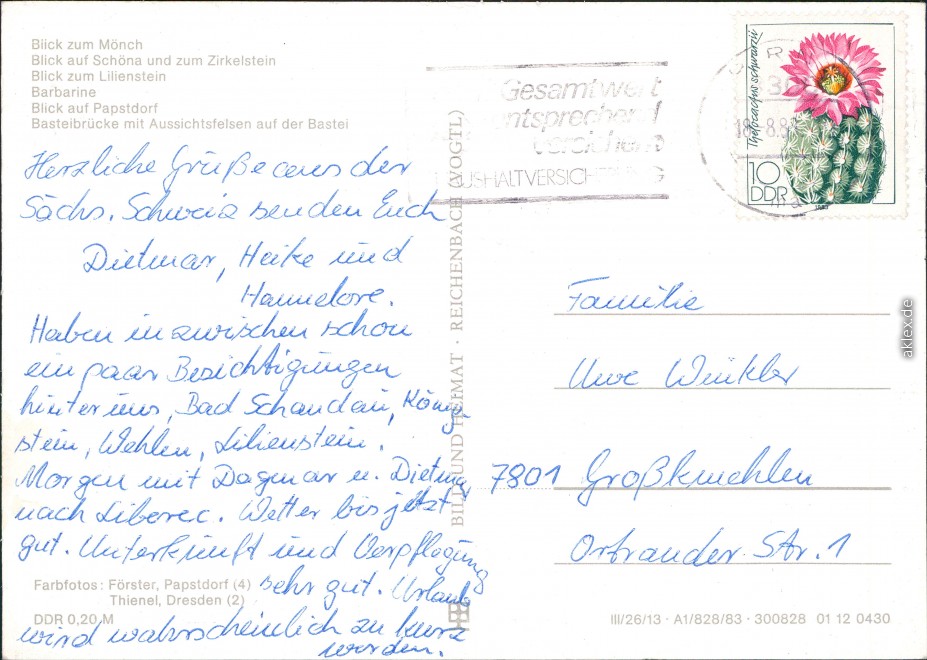 Blick zum Mönch
Blick auf Schöna und zum Zirkelstein
Blick zum Lilienstein
Barbarine
Blick auf Papstdorf
Basteibrücke mit Aussichtsfelsen auf der Bastei
Herzliche Grüße aus der
Sächs. Schweiz senden Euch
Dietmar, Heike und
Hannelore.
Haben inzwischen schon
ein paar Besichtigungen
hinter uns, Bad Schandau, König
stein, Wehlen, Lilienstein.
Morgen mit Dagmar u. Dietmar
nach Liberec. Wetter bis jetzt
gut. Unterkunft und Verpflegung
sehr gut. Urlaub
wird wahrscheinlich zu kurz
werden.
Farbfotos: Förster, Papstdorf (4)
Thienel, Dresden (2)
DDR 0,20 M
BILD UND HEIMAT · REICHENBACH (VOGTL)
Gesamtwert
entsprechend
versichern
HAUSHALTVERSICHERUNG
Thelocactus schwarzii
10
DDR
1983
Familie
Uwe Winkler
7801 Großkmehlen
Ortrander Str. 1
III/26/13 · A1/828/83 · 300828 01 12 0430
aklex.de